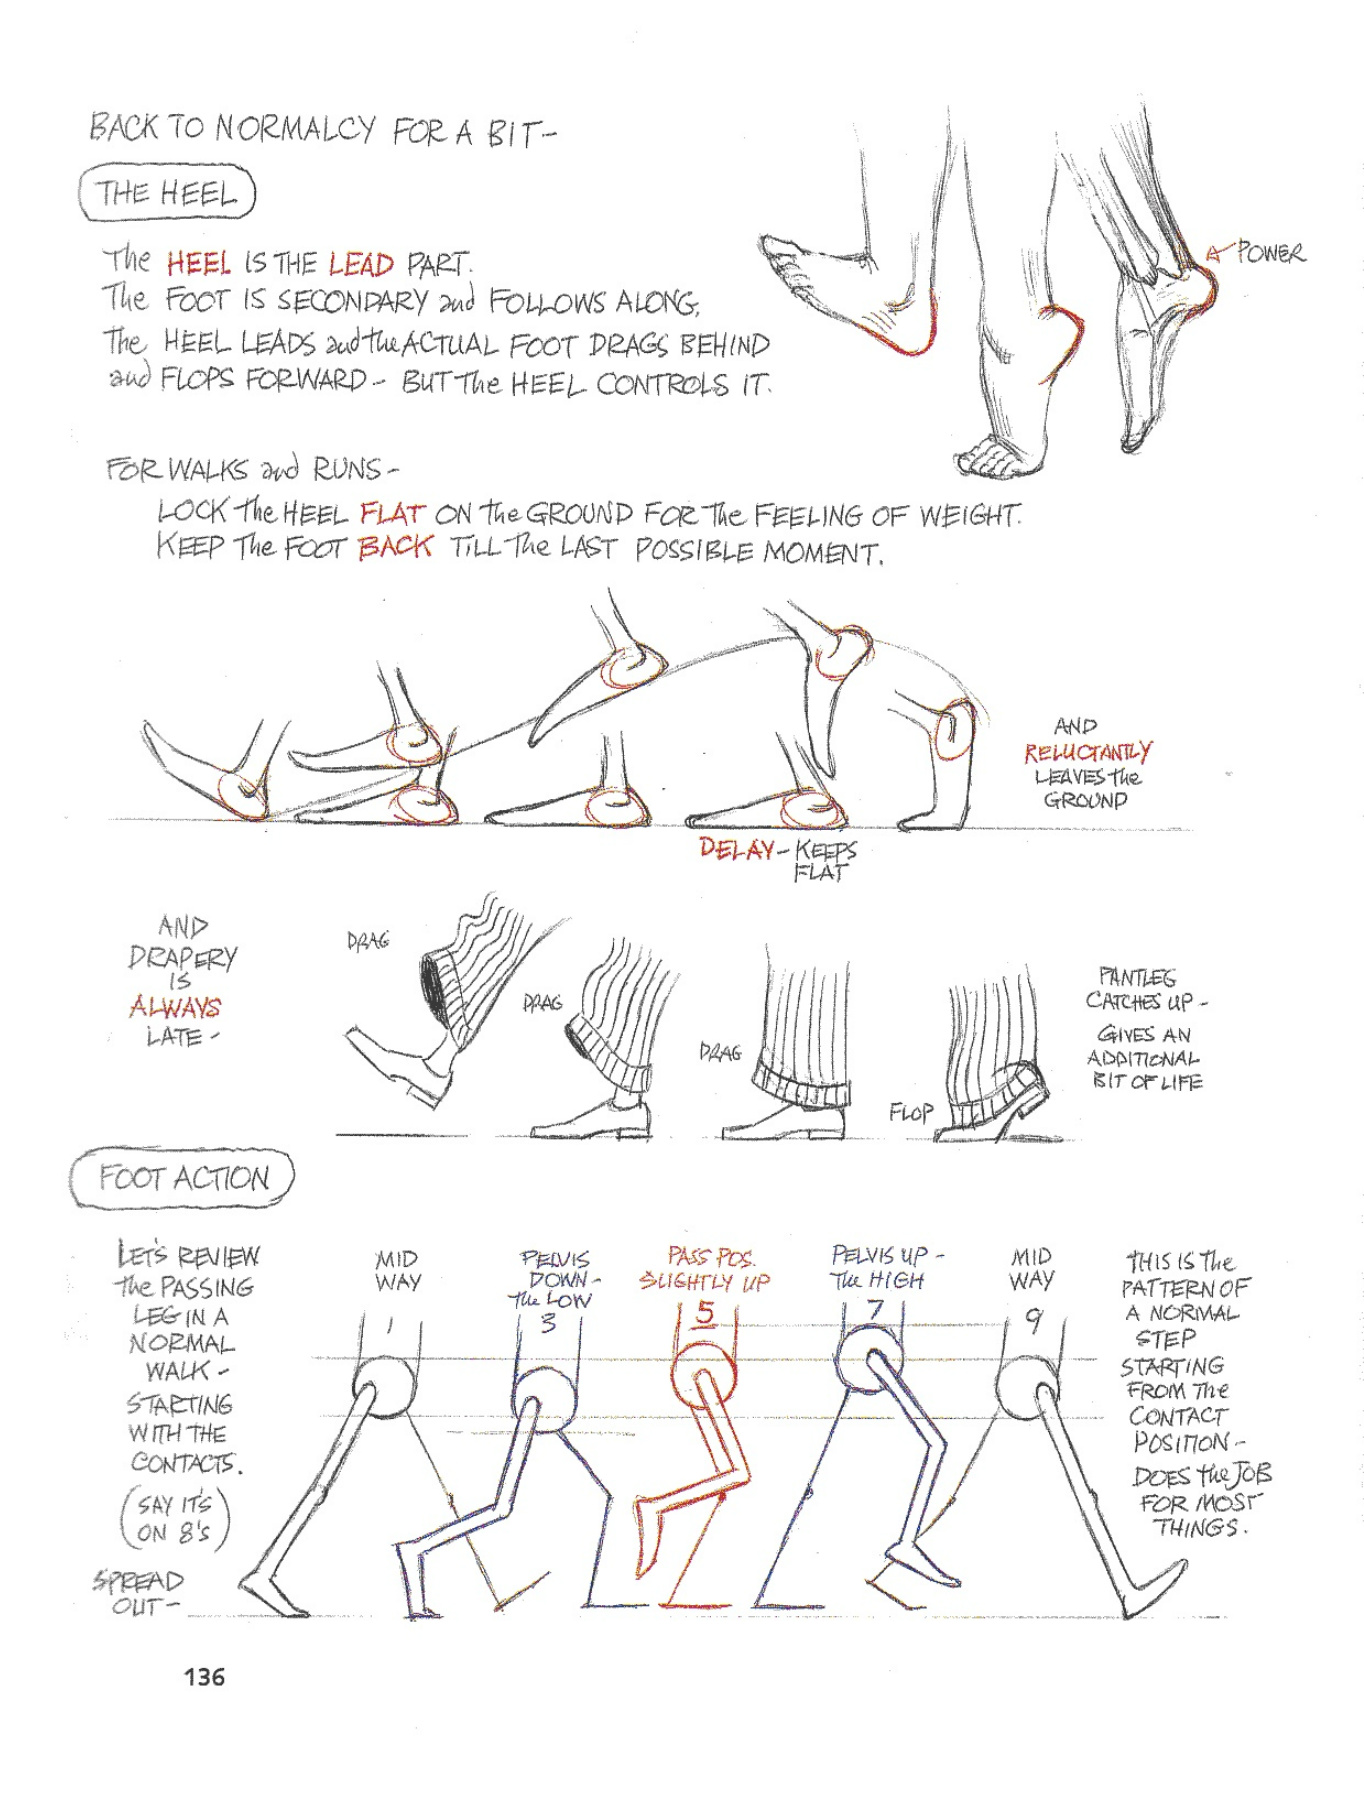 BACK TO NORMALCY FOR A BIT-
THE HEEL
The HEEL IS THE LEAD PART.
The FOOT IS SECONDARY and FOLLOWS ALONG,
The HEEL LEADS and the ACTUAL FOOT DRAGS BEHIND
and FLOPS FORWARD - BUT The HEEL CONTROLS IT.
POWER
FOR WALKS and RUNS-
LOCK the HEEL FLAT ON the GROUND FOR The FEELING OF WEIGHT.
KEEP The FOOT BACK TILL The LAST POSSIBLE MOMENT.
AND
RELUCTANTLY
LEAVES the
GROUND
DELAY - KEEPS
FLAT
AND
DRAPERY
IS
ALWAYS
LATE -
DRAG
DRAG
DRAG
FLOP
PANTLEG
CATCHES UP -
GIVES AN
ADDITIONAL
BIT OF LIFE
FOOT ACTION
LET'S REVIEW
the PASSING
LEG IN A
NORMAL
WALK -
STARTING
WITH THE
CONTACTS.
(SAY IT'S
ON 8's)
SPREAD
OUT -
MID
WAY
1
PELVIS
DOWN -
The LOW
3
PASS POS.
SLIGHTLY UP
5
PELVIS UP -
The HIGH
7
MID
WAY
9
THIS IS the
PATTERN OF
A NORMAL
STEP
STARTING
FROM The
CONTACT
POSITION -
DOES the JOB
FOR MOST
THINGS.
136